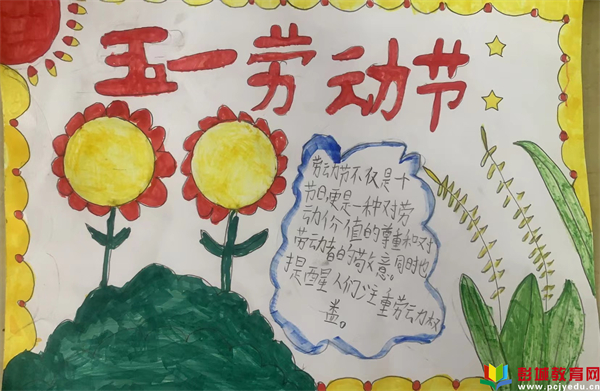 五一劳动节
劳动节不仅是十
节日更是一种对劳
动价值的尊重和对
劳动者的敬意。同时也
提醒人们注重劳动力权
益。
彭城教育网
www.pcjyedu.cn